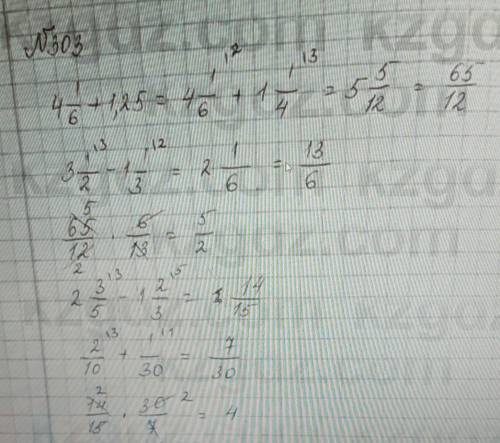 №303
4 1/6 + 1,25 = 4 1/6 ^{12} + 1 1/4 ^{13} = 5 5/12 = 65/12
3 1/2 ^{13} - 1 1/3 ^{12} = 2 1/6 = 13/6
65/12 · 6/13 = 5/2
5
2
2 3/5 ^{13} - 1 2/3 ^{15} = 14/15
2/10 ^{13} + 1/30 ^{11} = 7/30
14/15 · 30/7 = 4
2
2
kzgdz.com